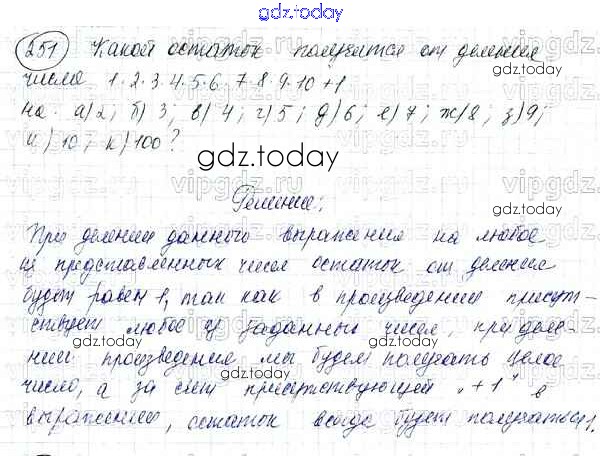 gdz.today
251 Какой остаток получится от деления
числа 1·2·3·4·5·6·7·8·9·10+1
на а)2; б) 3; в) 4; г) 5; д) 6; е) 7; ж) 8; з) 9;
и) 10; к) 100?
gdz.today
Решение:
При делении данного выражения на любое
из представленных чисел остаток от деления
будет равен 1, так как в произведении присут-
ствует любое из заданных чисел, при деле-
нии произведения мы будем получать целое
число, а за счет присутствующей "+1" в
выражении, остаток всегда будет получаться 1.